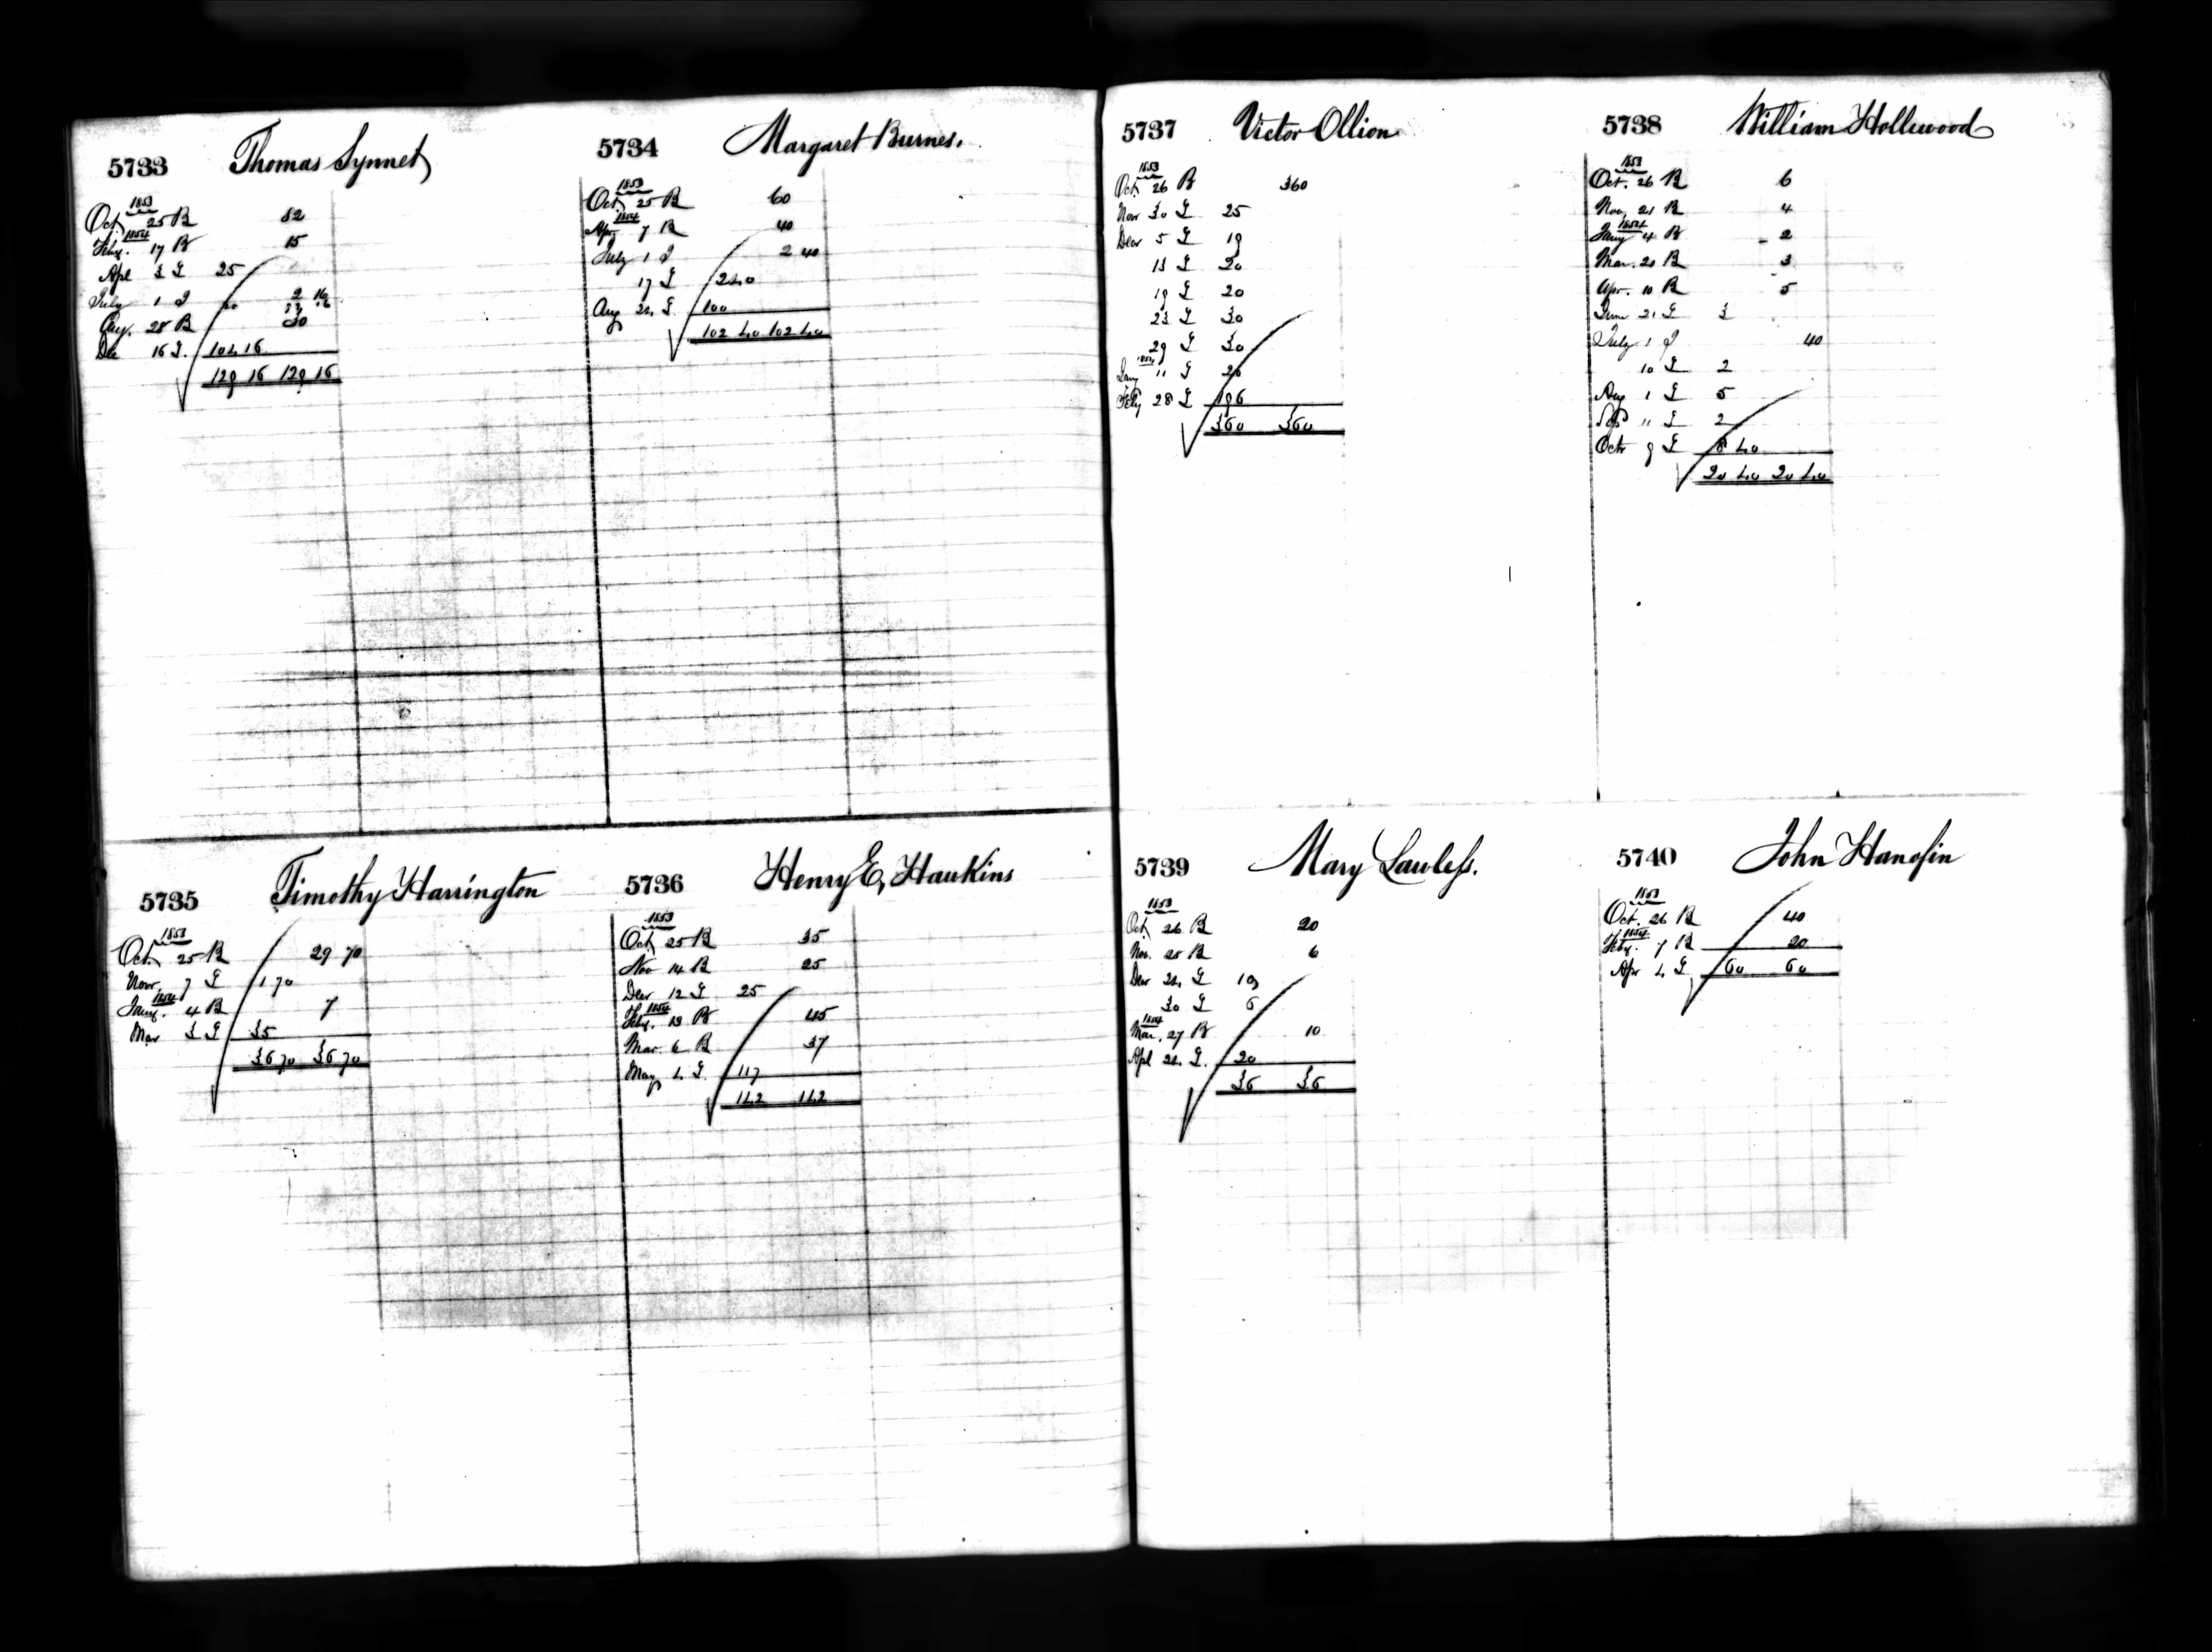 5733 Thomas Synnet
1853
Oct 25 B 82
1854
Feby. 17 B 15
Apl 3 L 25
July 1 I 2 16
Aug. 28 B 30
Dec 16 L. 104 16
129 16 129 16
5734 Margaret Burnes.
1853
Oct 25 B 60
1854
Apr 7 B 40
July 1 I 2 40
17 L 2 40
Aug 24 L 100
102 40 102 40
5735 Timothy Harrington
1853
Oct 25 B 29 70
Novr. 7 L 1 70
1854
Jany. 4 B 7
Mar 3 L 35
36 70 36 70
5736 Henry E, Hawkins
1853
Oct 25 B 35
Nov 14 B 25
Decr 12 L 25
1854
Feby. 13 B 45
Mar. 6 B 37
May 4 L. 117
142 142
5737 Victor Ollion
1853
Oct 26 B 360
Nov 30 L 25
Decr 5 L 19
13 L 20
19 L 20
23 L 30
29 L 30
1854
Jany 11 L 20
Feby 28 L 196
360 360
5738 William Hollewood
1853
Oct. 26 B 6
Nov. 21 B 4
1854
Jany 4 B 2
Mar. 20 B 3
Apr. 10 B 5
June 21 L 3
July 1 I 40
10 L 2
Aug 1 L 5
Sep " L 2
Octr 9 L 8 40
20 40 20 40
5739 Mary Lawless.
1853
Oct 26 B 20
Nov. 25 B 6
Decr 24 L 10
30 L 6
1854
Mar. 27 B 10
Apl 24 L. 20
36 36
5740 John Hanofin
1853
Oct. 26 B 40
1854
Feby. 7 B 20
Apr 4 L 60 60